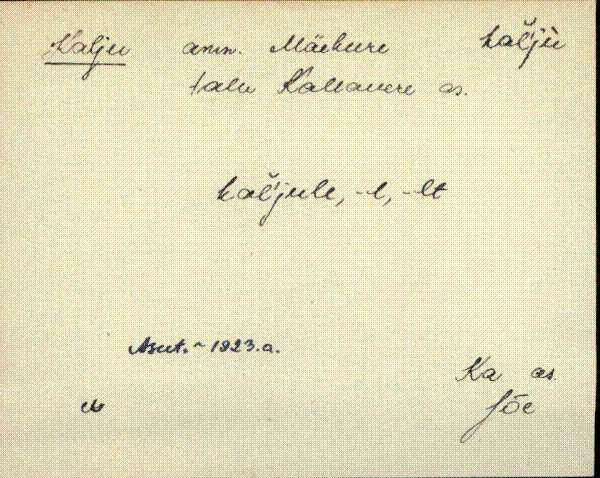 Kalju amn. Mäekure kal̆'jù
talu Kallavere as.
kal̆'jule, -l, -lt
Asut. ~ 1923. a.
Ka as.
Jõe